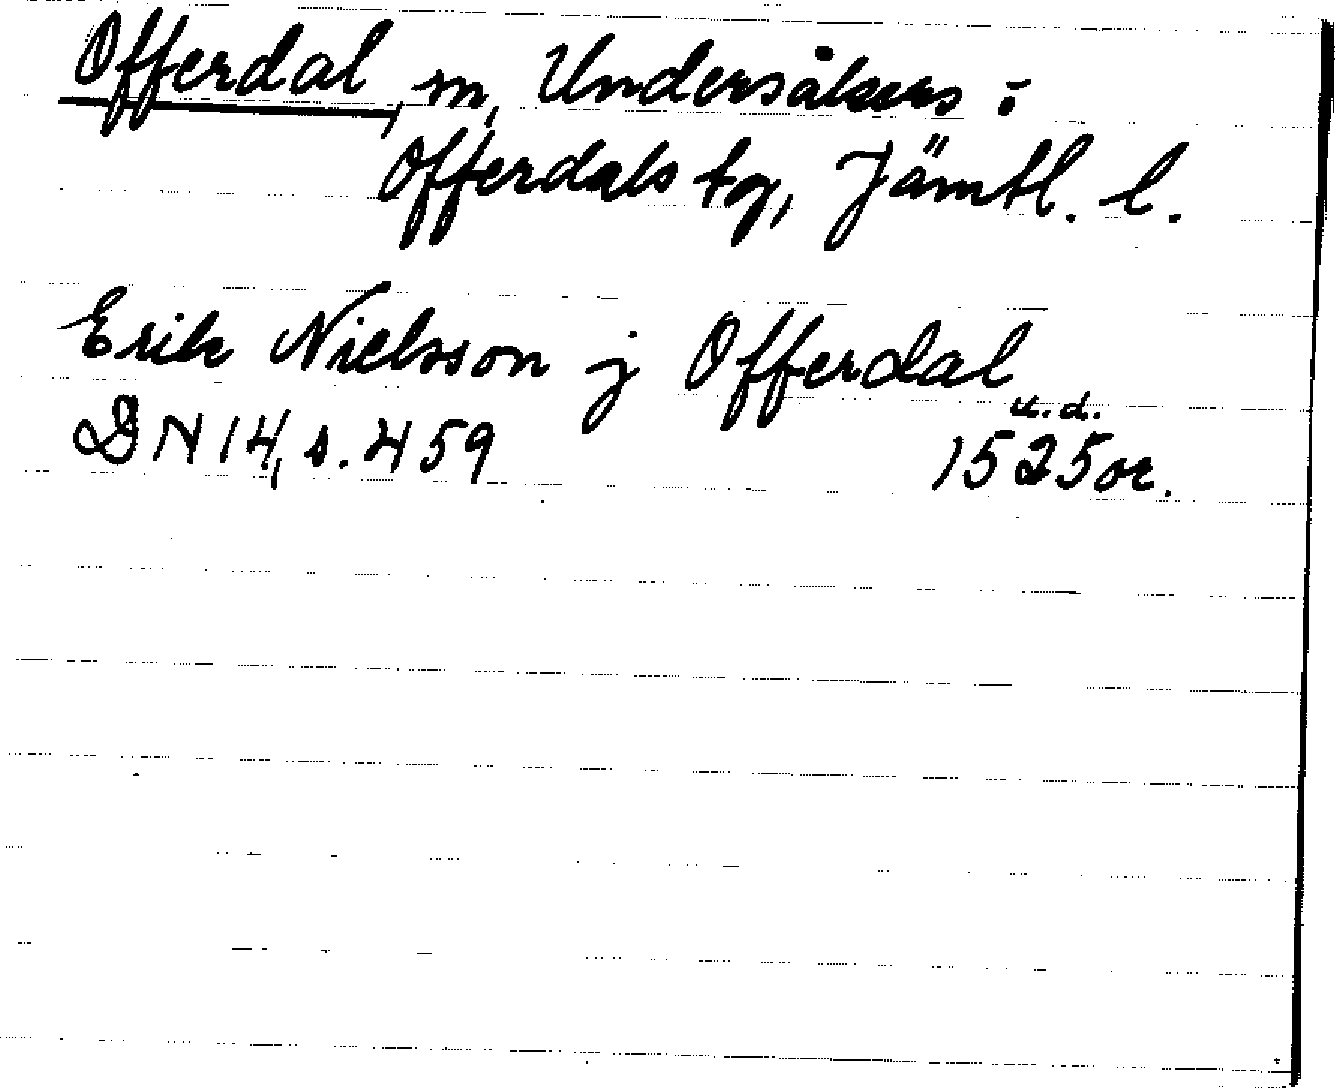 Offerdal, m, Undersåkers o
Offerdals tg, Jämtl. l.
Erik Nielsson j Offerdal
u.d.
DN 14, s. 459 1525 or.